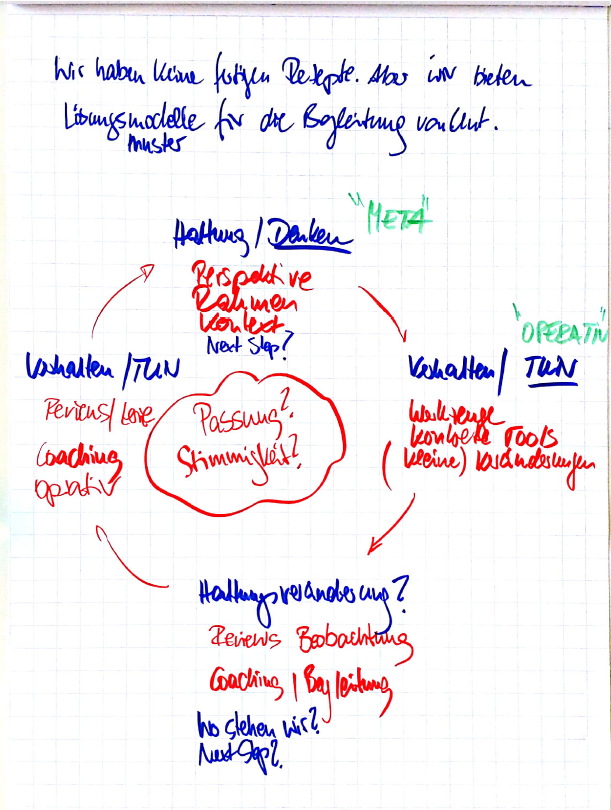 Wir haben keine fertigen Rezepte. Aber wir bieten
Lösungsmodelle für die Begleitung von
muster
"META"
Haltung / Denken
Perspektive
Rahmen
Kontext
Next Step?
"OPERATIV"
Verhalten / TUN
Werkzeuge
konkrete Tools
(kleine) Veränderungen
Haltungsveränderung?
Reviews Beobachtung
Coaching / Begleitung
Wo stehen wir?
Next Step?
Verhalten / TUN
Reviews /
Coaching
operativ
Passung?
Stimmigkeit?